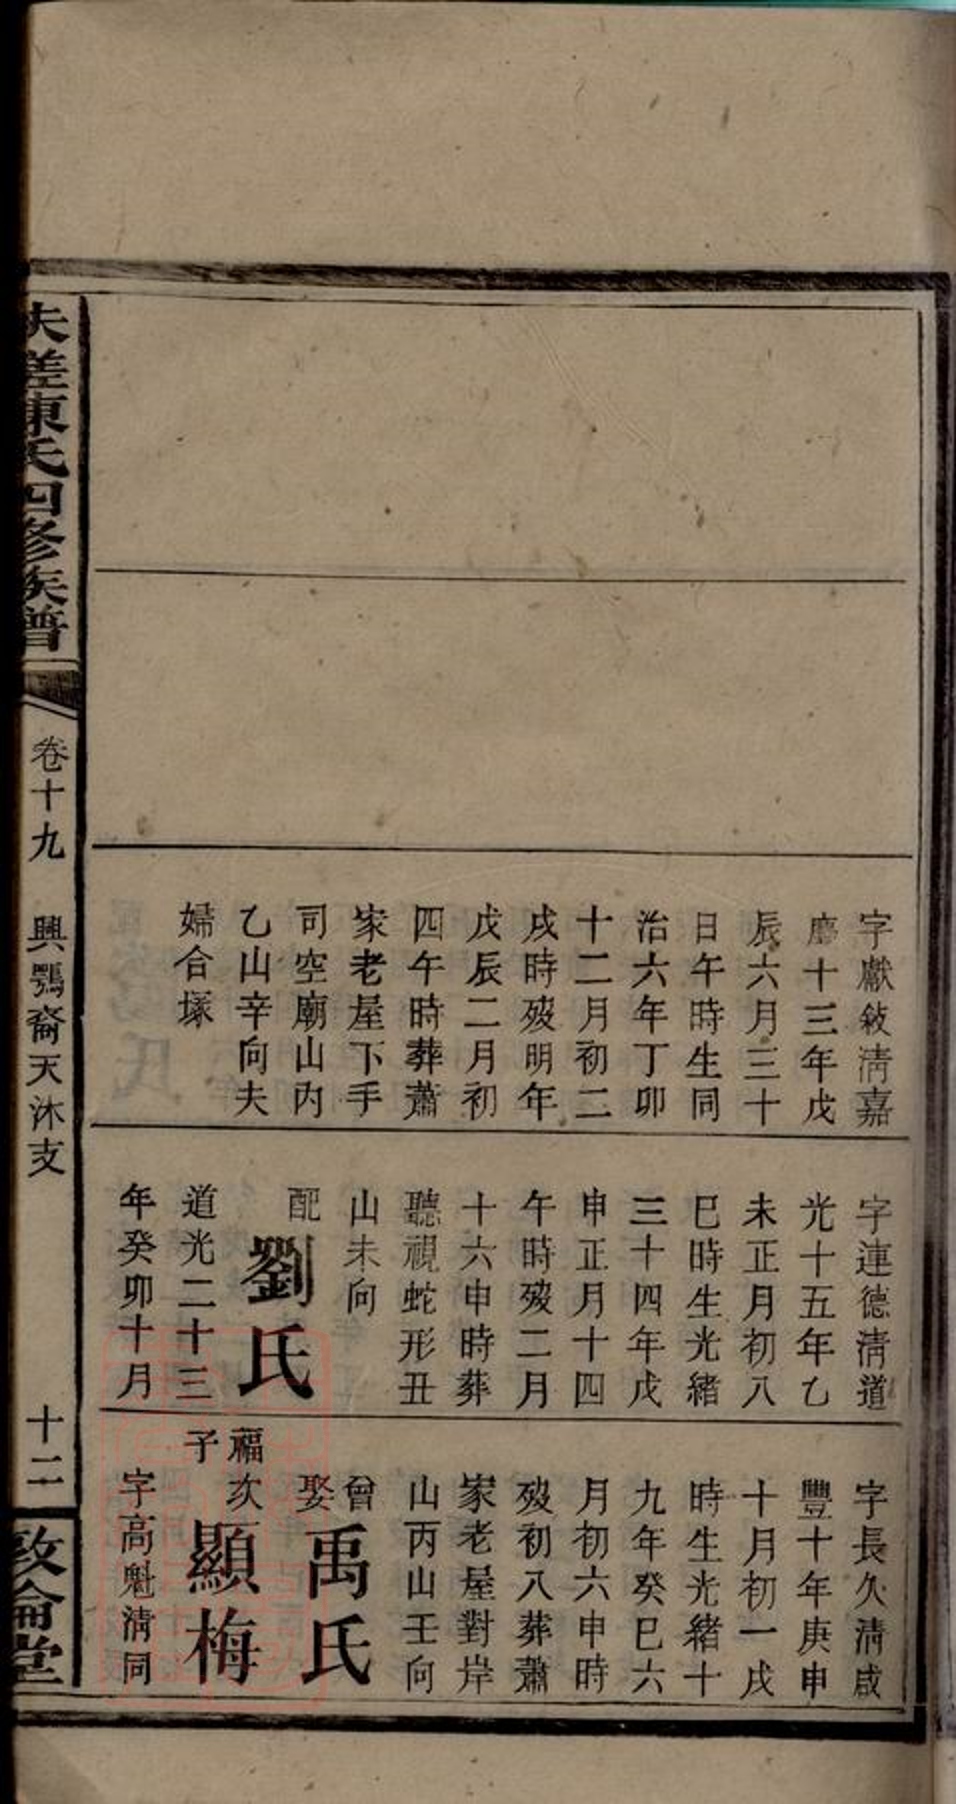 字獻敍淸嘉
慶十三年戊
辰六月三十
日午時生同
治六年丁卯
十二月初二
戌時歿明年
戊辰二月初
四午時葬蕭
家老屋下手
司空廟山內
乙山辛向夫
婦合塚
字連德淸道
光十五年乙
未正月初八
巳時生光緒
三十四年戊
申正月十四
午時歿二月
十六申時葬
聽視蛇形丑
山未向
配劉氏
道光二十三
年癸卯十月
字長久淸咸
豐十年庚申
十月初一戌
時生光緒十
九年癸巳六
月初六申時
歿初八葬蕭
家老屋對岸
山丙山壬向
曾娶禹氏
福次子顯梅
字高魁淸同
夫差陳氏四修族譜
卷十九
興鶚裔天沐支
十二
敦倫堂